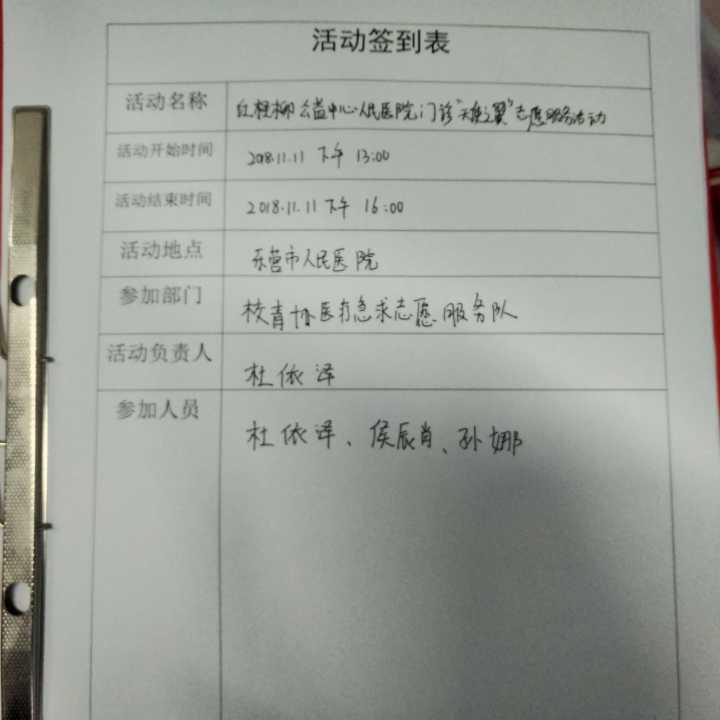 活动签到表
活动名称 红柽柳公益中心人民医院门诊"天使之翼"志愿服务活动
活动开始时间 2018.11.11 下午 13:00
活动结束时间 2018.11.11 下午 16:00
活动地点 东营市人民医院
参加部门 校青协医疗急求志愿服务队
活动负责人 杜依泽
参加人员 杜依泽、侯辰肖、孙娜